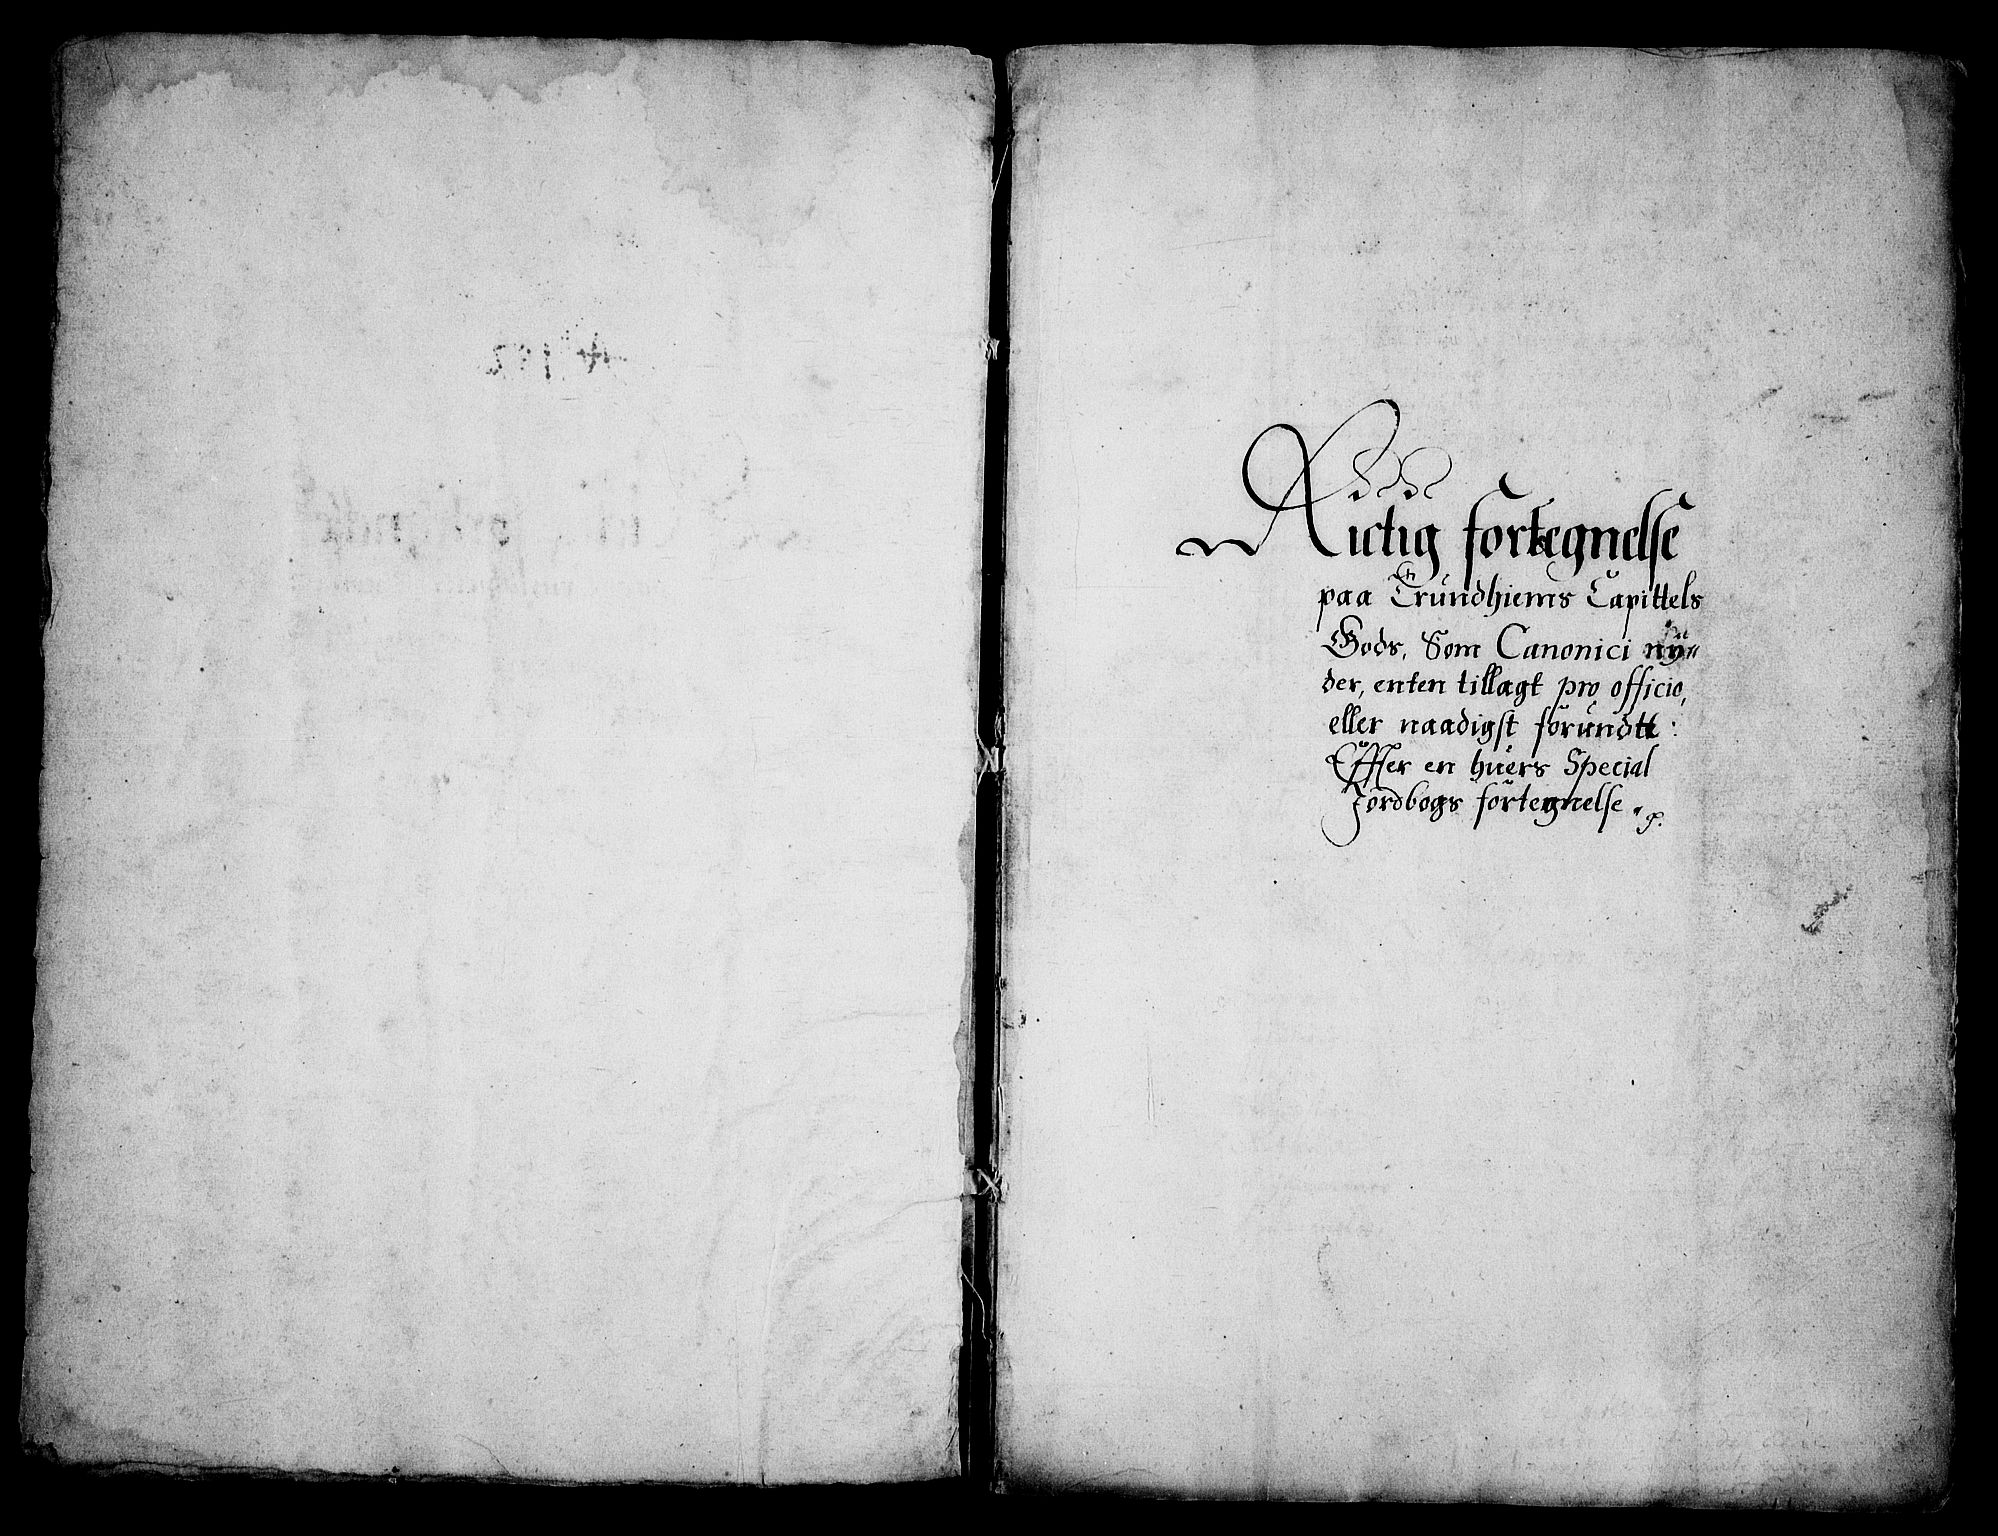 Rictig fortegnelse
paa Trundhiems Capittels
Gods, Som Canonici ny=
der, enten tillagt pro officio,
eller naadigst forundtt:
Effter en huers Special
Jordbogs fortegnelse.